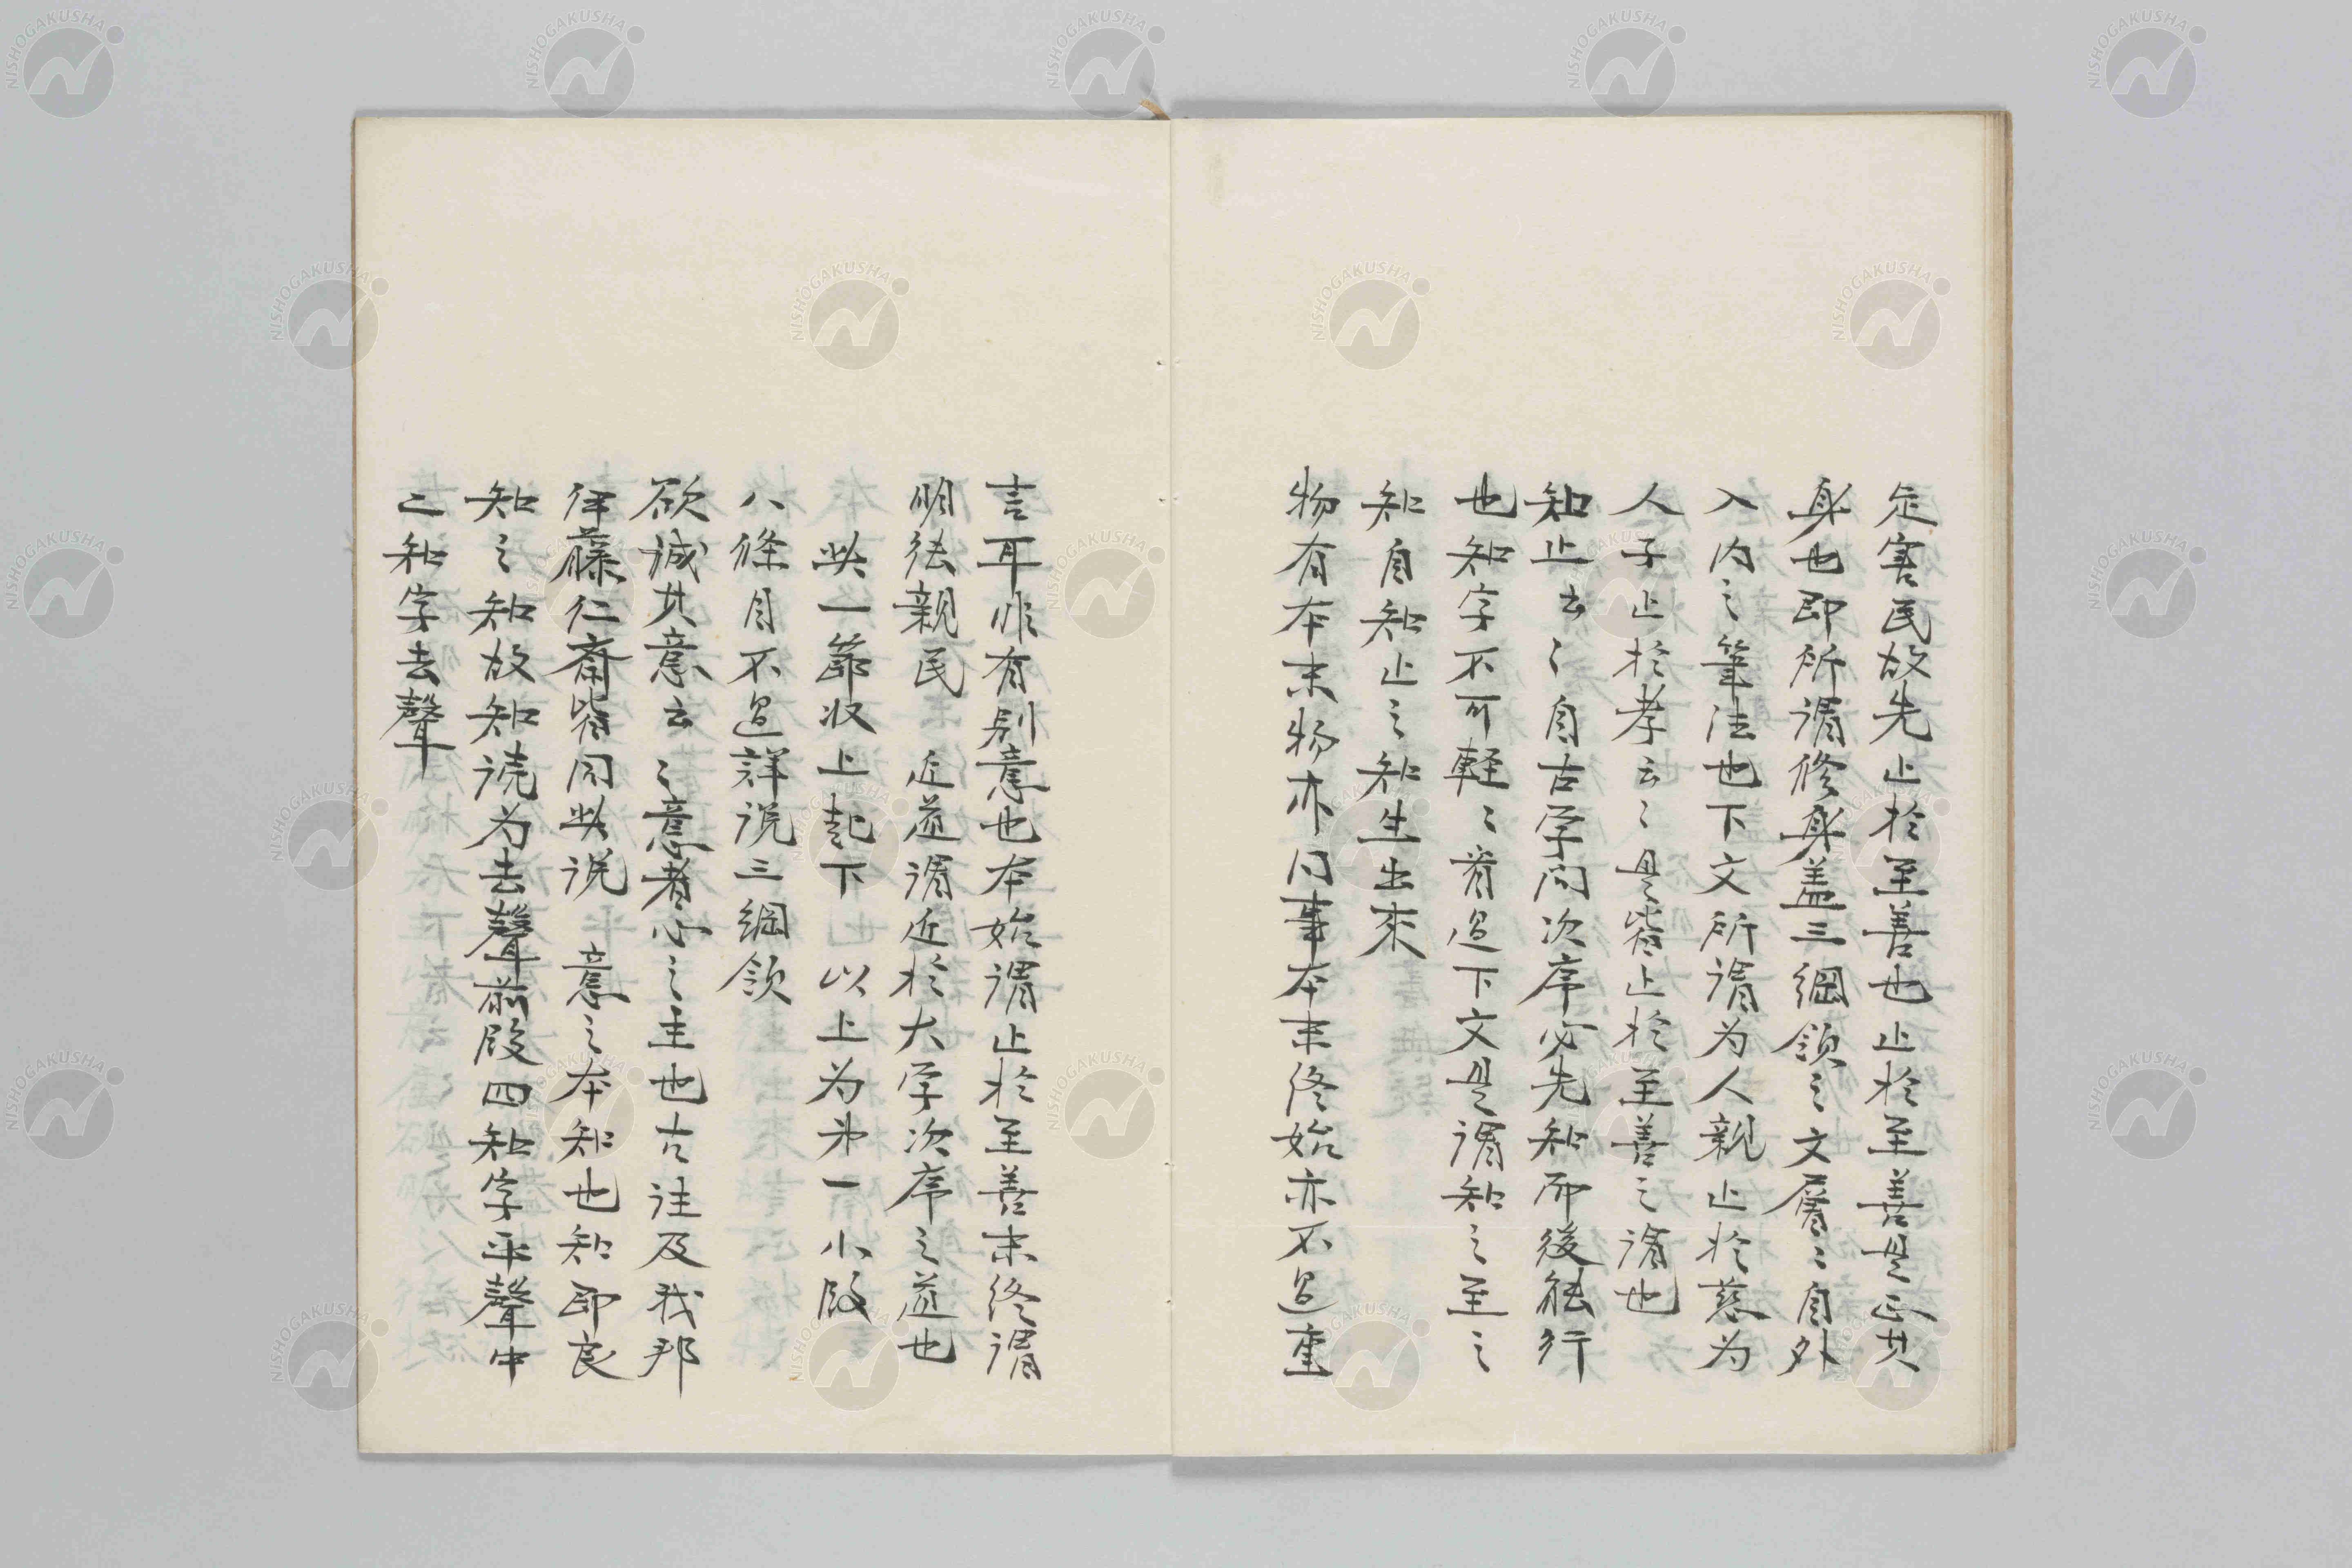 定害民故先止於至善也止於至善是正其
身也即所謂修身蓋三綱領之文層〻自外
入内之筆法也下文所謂为人親止於慈为
人子止於孝云〻是皆止於至善之謂也
知止云〻自古学问次序必先知而後能行
也知字不可軽〻看過下文是謂知之至之
知自知止之知生出來
物有本末物亦同事本末終始亦不過重
言耳非有别意也本始謂止於至善末終謂
明徳親民　近道謂近於大学次序之道也
此一節收上起下也以上为第一小段
八條目不過詳说三綱領
欲誠其意云〻意者心之主也古注及我邦
伊藤仁斎皆同此说　意之本知也知即良
知之知故知读为去聲前段四知字平聲中
二知字去聲
NISHOGAKUSHA